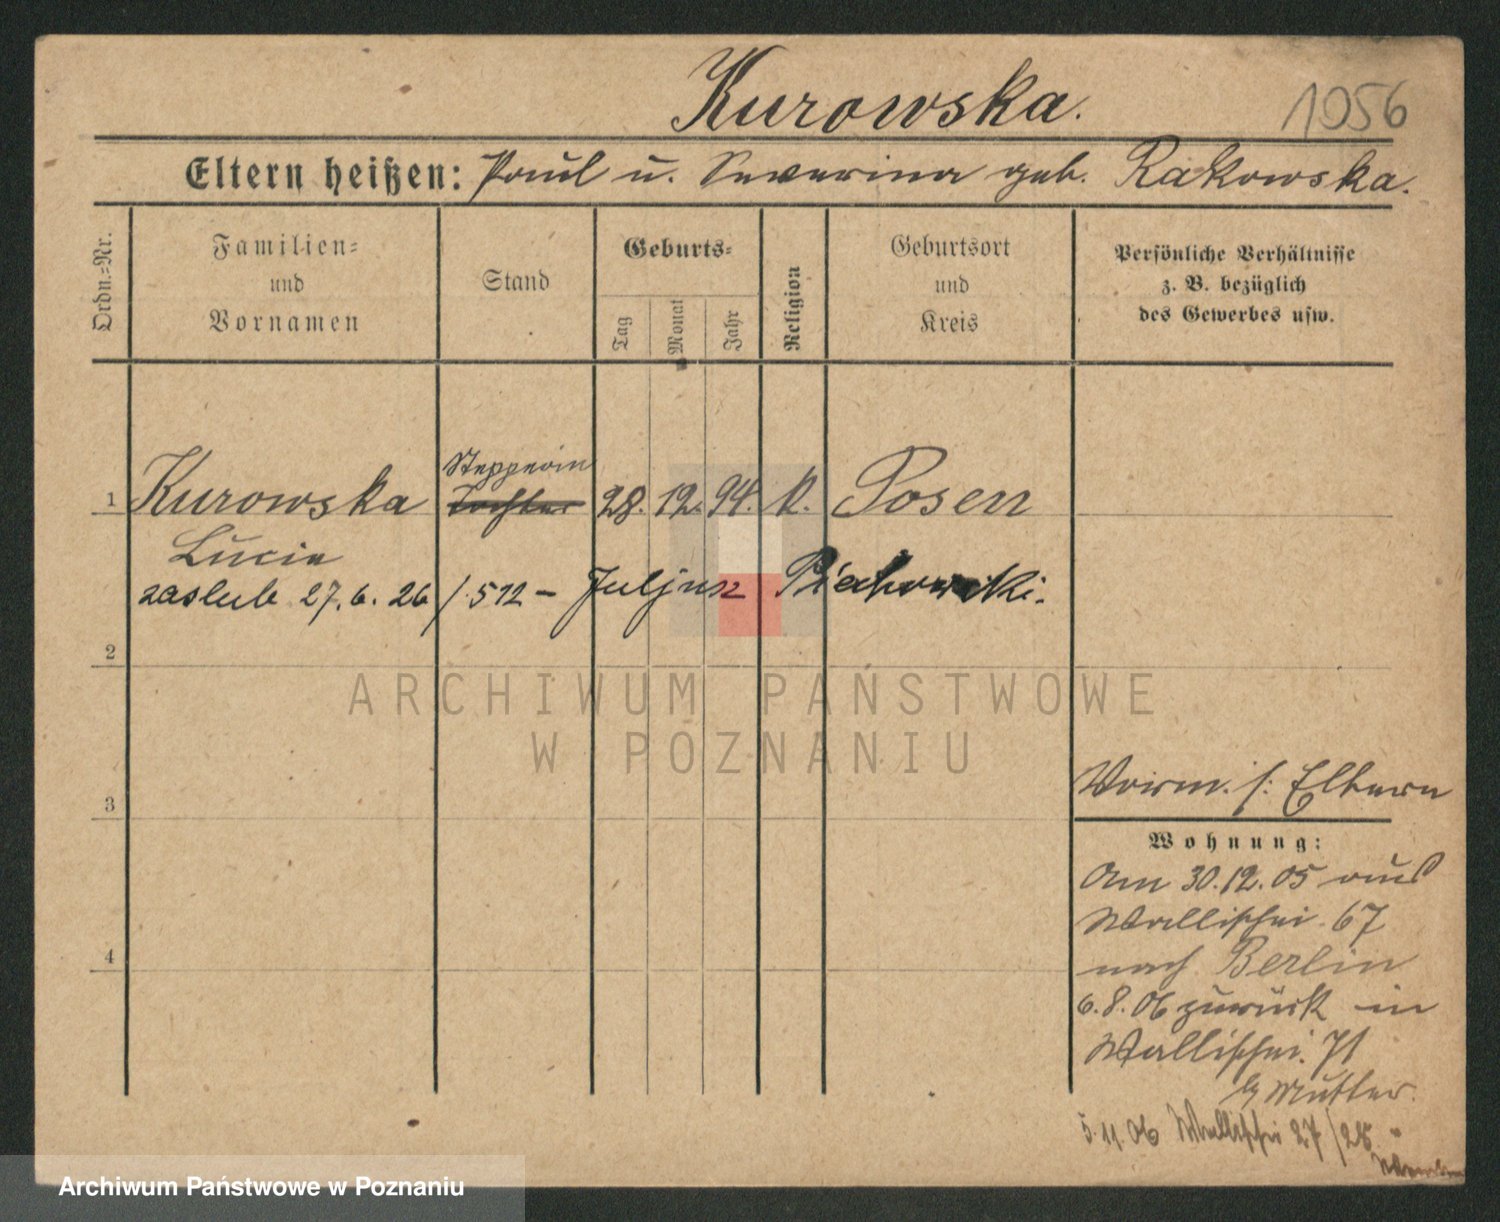 Kurowska.
1056
Eltern heißen: Paul u. Severina geb. Rakowska.
Ordn.-Nr.
Familien-
und
Vornamen
Stand
Geburts-
Tag
Monat
Jahr
Religion
Geburtsort
und
Kreis
Persönliche Verhältnisse
z. B. bezüglich
des Gewerbes usw.
Stepperin
1 Kurowska Tochter 28. 12. 94. k. Posen
Lucie
zaslub 27. 6. 26 / 512 - Juljusz
2
ARCHIWUM PAŃSTWOWE
W POZNANIU
Vorm. s. Eltern
3
Wohnung:
Am 30.12.05 aus
Wallischei 67
4
nach Berlin
6.8.06 zurück in
Wallischei 71
b Mutter.
5.11.06 Wallischei 27/28
Archiwum Państwowe w Poznaniu